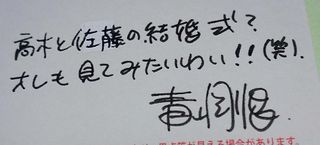 高木と佐藤の結婚式?
オレも見てみたいわい!!(笑).
青山剛昌
見える場合があります。